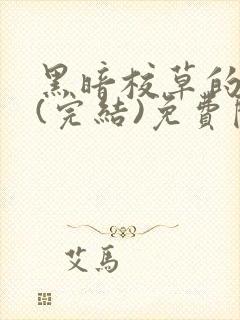 黑暗校草的
(完結)免費
艾馬